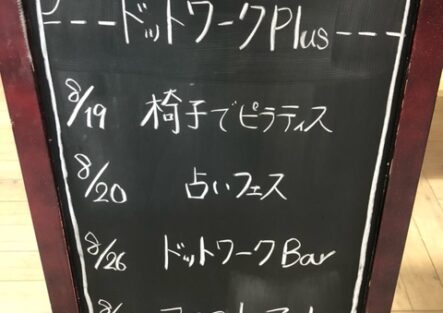 ---ドットワークPlus---
8/19 椅子でピラティス
8/20 占いフェス
8/26 ドットワークBar
8/